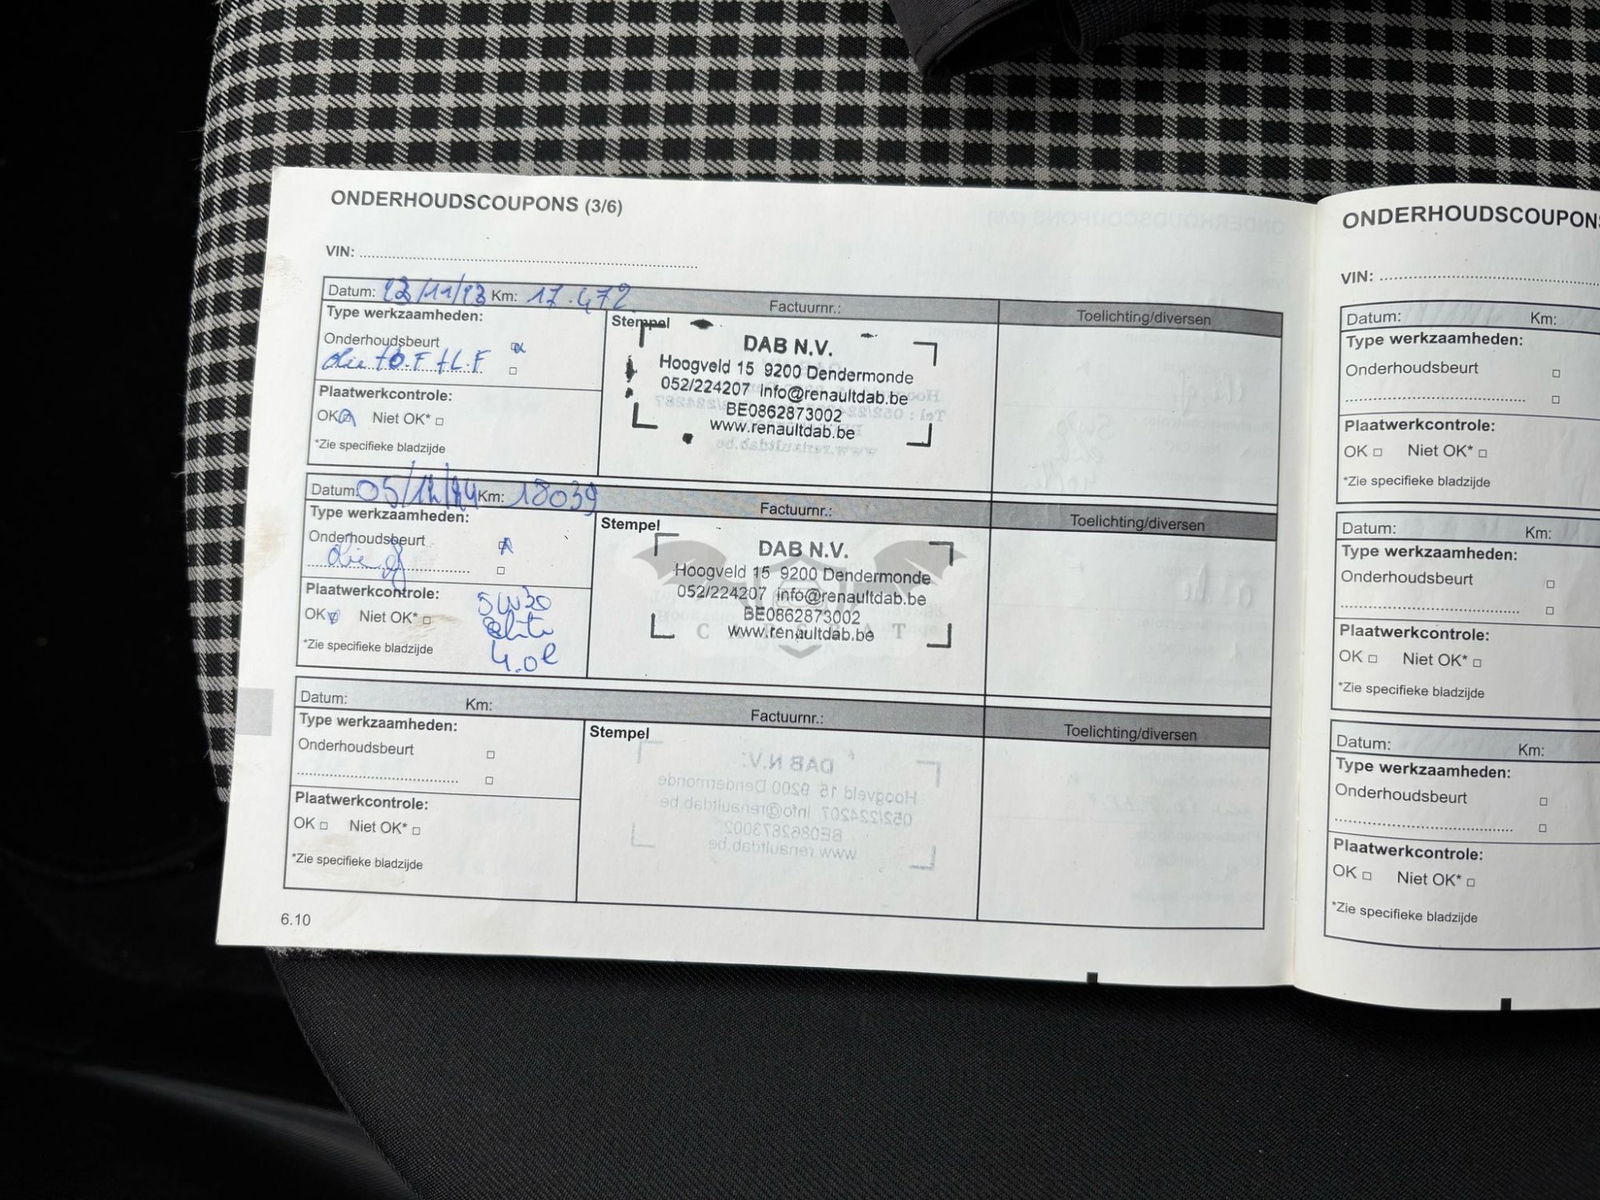 ONDERHOUDSCOUPONS (3/6)
VIN:
Datum: 23/11/23 Km: 17.472 Factuurnr.: Toelichting/diversen
Type werkzaamheden:
Onderhoudsbeurt
olie + O.F + L.F
Plaatwerkcontrole:
OK Niet OK*
*Zie specifieke bladzijde
Stempel
DAB N.V.
Hoogveld 15 9200 Dendermonde
052/224207 info@renaultdab.be
BE0862873002
www.renaultdab.be
Datum: 05/12/24 Km: 18039 Factuurnr.: Toelichting/diversen
Type werkzaamheden:
Onderhoudsbeurt
Plaatwerkcontrole:
OK Niet OK*
*Zie specifieke bladzijde
5W30
4.0l
Stempel
DAB N.V.
Hoogveld 15 9200 Dendermonde
052/224207 info@renaultdab.be
BE0862873002
www.renaultdab.be
Datum: Km: Factuurnr.: Toelichting/diversen
Type werkzaamheden:
Onderhoudsbeurt
Plaatwerkcontrole:
OK Niet OK*
*Zie specifieke bladzijde
Stempel
6.10
ONDERHOUDSCOUPONS
VIN:
Datum: Km:
Type werkzaamheden:
Onderhoudsbeurt
Plaatwerkcontrole:
OK Niet OK*
*Zie specifieke bladzijde
Datum: Km:
Type werkzaamheden:
Onderhoudsbeurt
Plaatwerkcontrole:
OK Niet OK*
*Zie specifieke bladzijde
Datum: Km:
Type werkzaamheden:
Onderhoudsbeurt
Plaatwerkcontrole:
OK Niet OK*
*Zie specifieke bladzijde